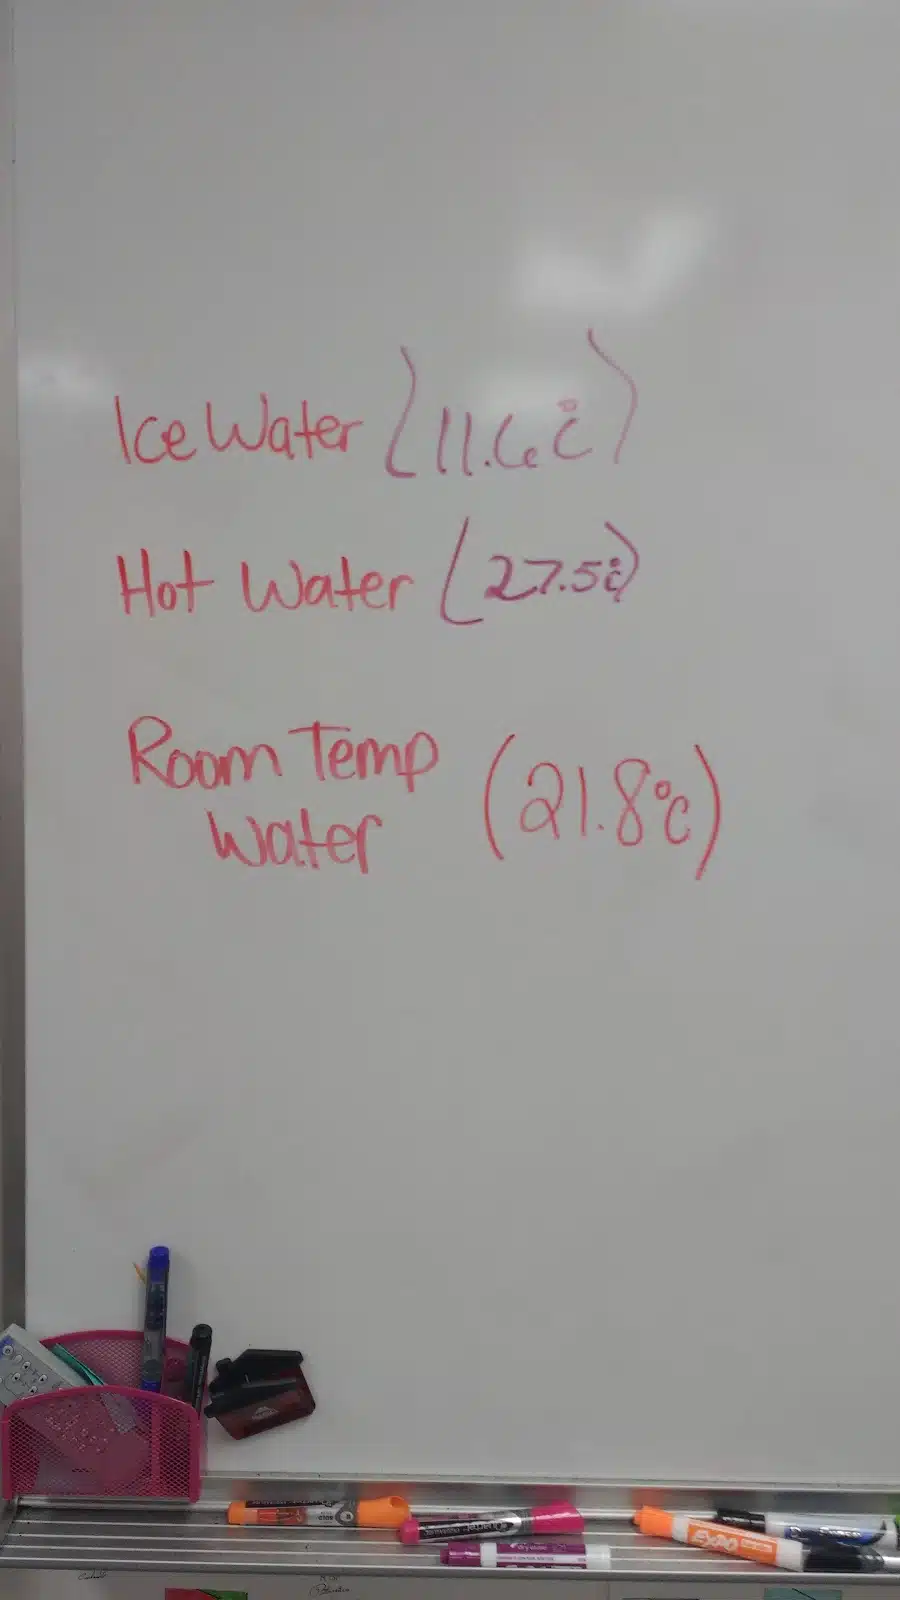 Ice Water (11.6°C)
Hot Water (27.5°C)
Room Temp
Water (21.8°C)
EXPO